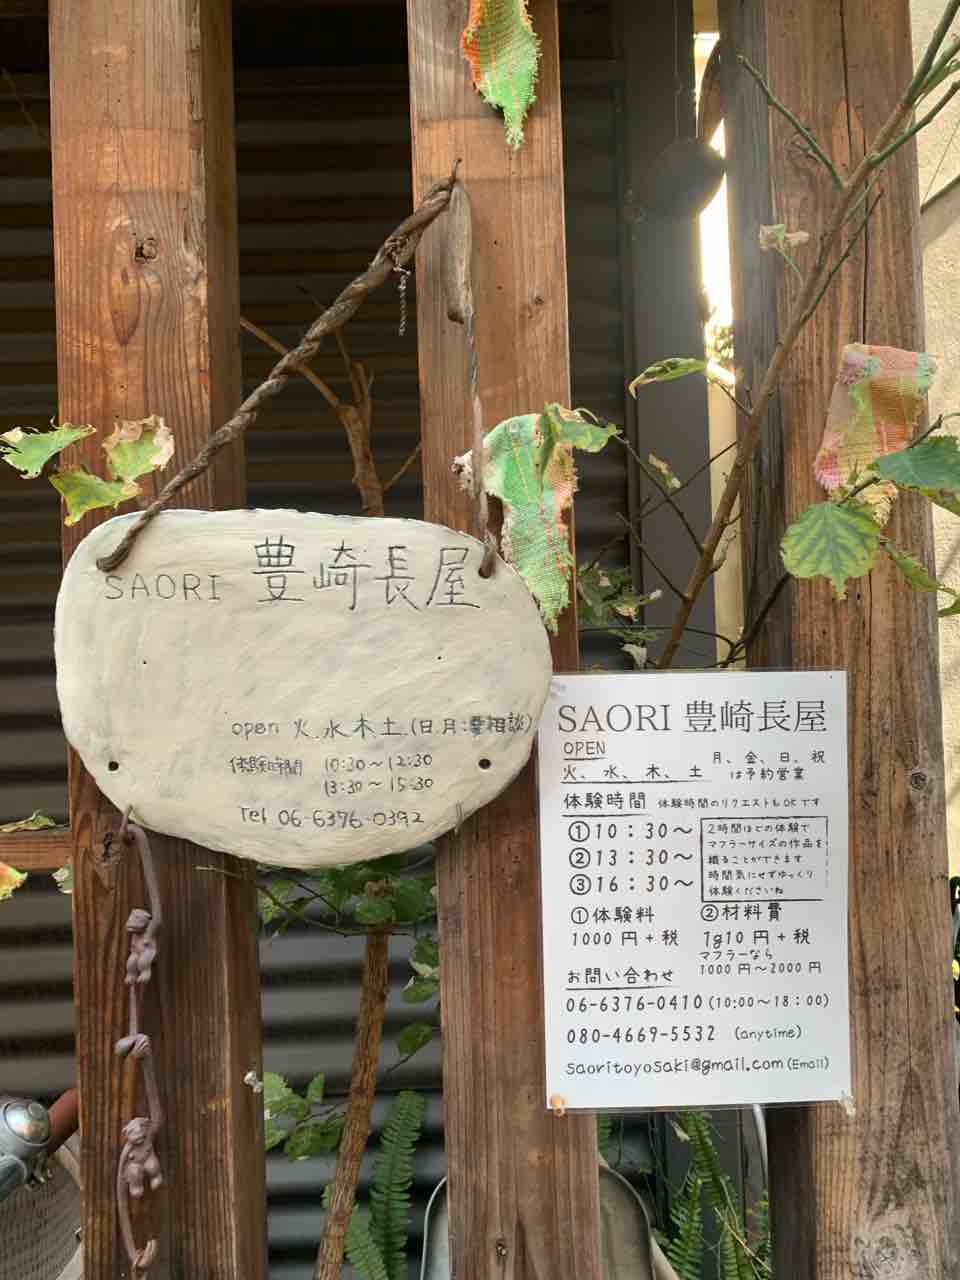 SAORI 豊崎長屋
open 火.水木土.(日.月:要相談)
体験時間 10:30〜12:30
13:30〜15:30
Tel 06-6376-0392
SAORI 豊崎長屋
OPEN
火、水、木、土
月、金、日、祝
は予約営業
体験時間 体験時間のリクエストもOKです
①10：30〜
②13：30〜
③16：30〜
2時間ほどの体験で
マフラーサイズの作品を
織ることができます
時間気にせずゆっくり
体験くださいね
①体験料
1000円+税
②材料費
1g10円+税
マフラーなら
1000円〜2000円
お問い合わせ
06-6376-0410(10:00〜18:00)
080-4669-5532 (anytime)
saoritoyosaki@gmail.com(Email)